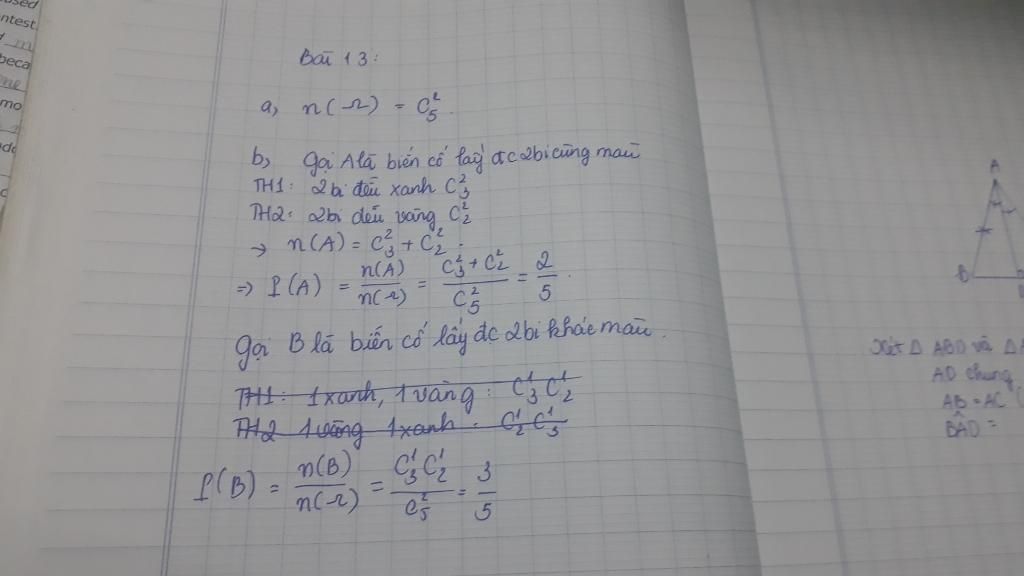 Bài 13:
a, n(Ω) = C₅².
b, Gọi A là biến cố lấy đc 2 bi cùng màu
TH1: 2 bi đều xanh C₃²
TH2: 2 bi đều vàng C₂²
→ n(A) = C₃² + C₂².
⇒ P(A) = n(A)/n(Ω) = (C₃² + C₂²)/C₅² = 2/5.
Gọi B là biến cố lấy đc 2 bi khác màu.
TH1: 1 xanh, 1 vàng: C₃¹ C₂¹
TH2 1 vàng 1 xanh. C₂¹ C₃¹
P(B) = n(B)/n(Ω) = C₃¹ C₂¹/C₅² = 3/5
A
B
Xét Δ ABD và Δ
AD chung
AB = AC
BÂD =
ntest
beca
mo